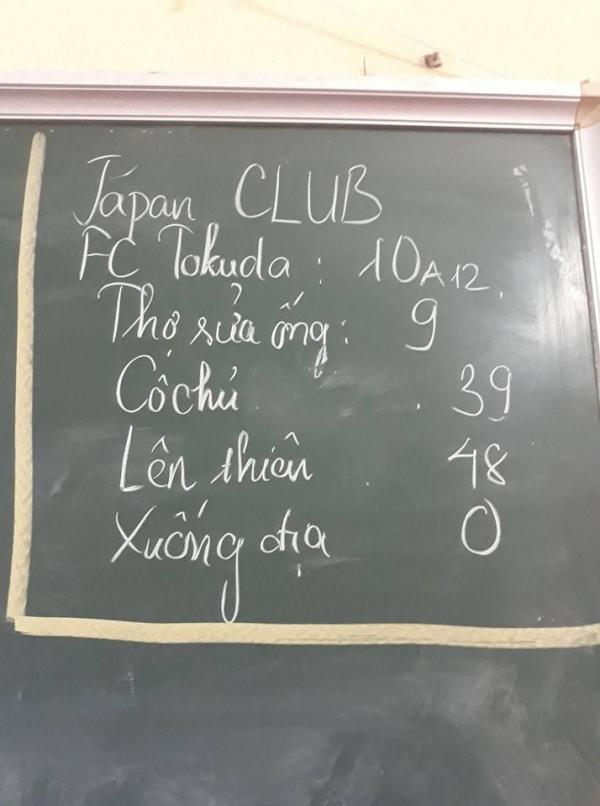 Japan CLUB
FC Tokuda : 10A12.
Thợ sửa ống : 9
Cô chủ . 39
Lên thiên . 48
Xuống địa 0